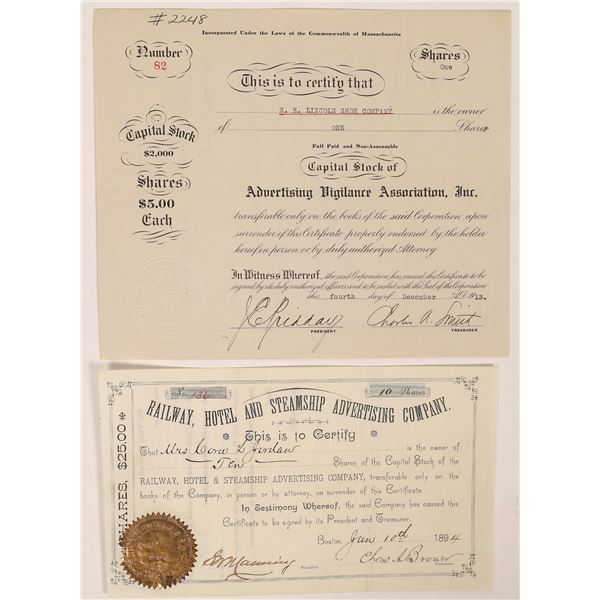 #2248
Incorporated Under the Laws of the Commonwealth of Massachusetts
Number
82
Shares
One
This is to certify that
E. E. LINCOLN SHOE COMPANY is the owner
of ONE Shares
Full Paid and Non-Assessable
Capital Stock
$2,000
Shares
$5.00
Each
Capital Stock of
Advertising Vigilance Association, Inc.
transferable only on the books of the said Corporation upon
surrender of this Certificate properly endorsed by the holder
hereof in person or by duly authorized Attorney
In Witness Whereof, the said Corporation has caused this Certificate to be
signed by its duly authorized officers and to be sealed with the Seal of the Corporation
this fourth day of December A.D. 1913.
PRESIDENT
Charles A. Smith
TREASURER
No. 136
10 Shares
RAILWAY, HOTEL AND STEAMSHIP ADVERTISING COMPANY.
This is to Certify
That Mrs Cora L Jordan is the owner of
Ten Shares of the Capital Stock of the
RAILWAY, HOTEL & STEAMSHIP ADVERTISING COMPANY, transferable only on the
books of the Company, in person or by attorney, on surrender of this Certificate.
In Testimony Whereof, the said Company has caused this
Certificate to be signed by its President and Treasurer.
Boston, Jan 10th 1894
Manning
President
Chas A Brown
SHARES, $25.00